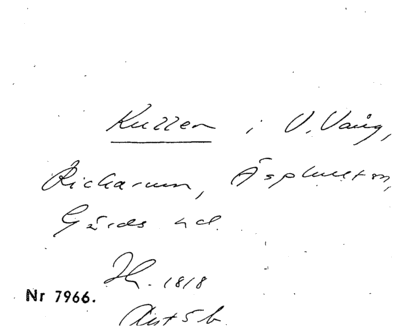 Kullen i V. Vång,
Rickarum, Äsphult sn,
Gärds hd.
Jh. 1818
Nr 7966.
Avt 5 b